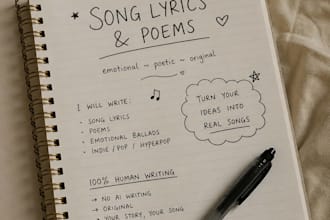 SONG LYRICS
& POEMS
emotional ~ poetic ~ original
I WILL WRITE:
• SONG LYRICS
• POEMS
• EMOTIONAL BALLADS
• INDIE / POP / HYPERPOP
TURN YOUR
IDEAS INTO
REAL SONGS
100% HUMAN WRITING
→ NO AI WRITING
→ ORIGINAL
→ YOUR STORY, YOUR SONG